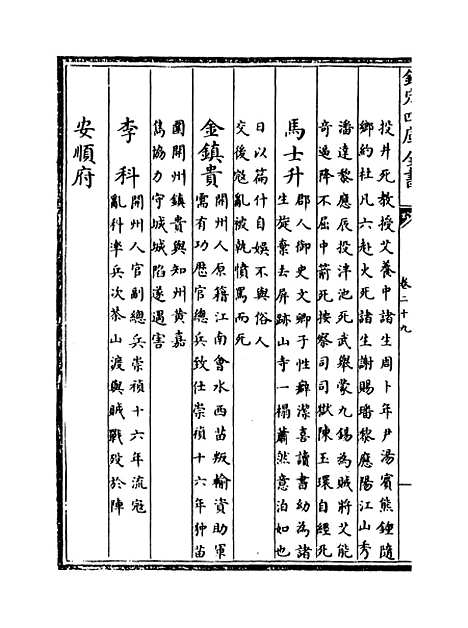 欽定四庫全書
卷二十九
投井死教授艾養中諸生周卜年尹湯賓熊鍾隨
鄉約杜凡六赴火死諸生謝賜璠黎應陽江山秀
潘達黎應辰投泮池死武舉蒙九錫為賊將艾能
奇過降不屈中箭死按察司司獄陳玉環自經死
馬士升 郡人御史文卿子性癖潔喜讀書幼為諸
生旋棄去屏跡山寺一榻蕭然意泊如也
日以篇什自娛不與俗人
交後寇亂被執憤罵而死
金鎮貴 開州人原籍江南會水西苗叛輸資助軍
需有功歷官總兵致仕崇禎十六年狆苗
圍開州鎮貴與知州黃嘉
雋協力守城城陷遂遇害
李科 開州人官副總兵崇禎十六年流寇
亂科率兵次茶山渡與賊戰歿於陣
安順府